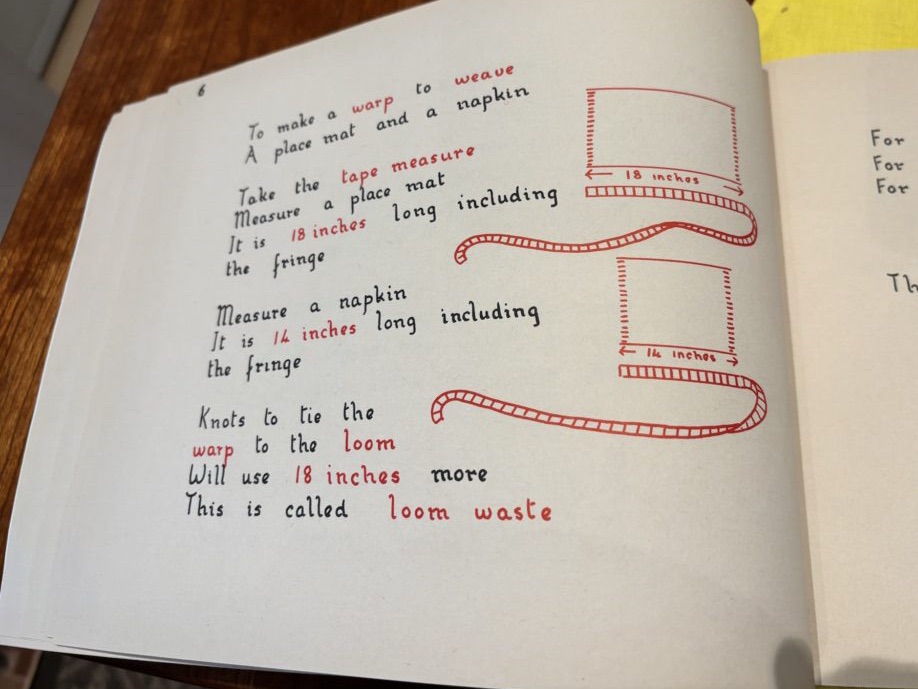 6
To make a warp to weave
A place mat and a napkin
Take the tape measure
Measure a place mat
It is 18 inches long including
the fringe
18 inches
Measure a napkin
It is 14 inches long including
the fringe
14 inches
Knots to tie the
warp to the loom
Will use 18 inches more
This is called loom waste
For
For
For